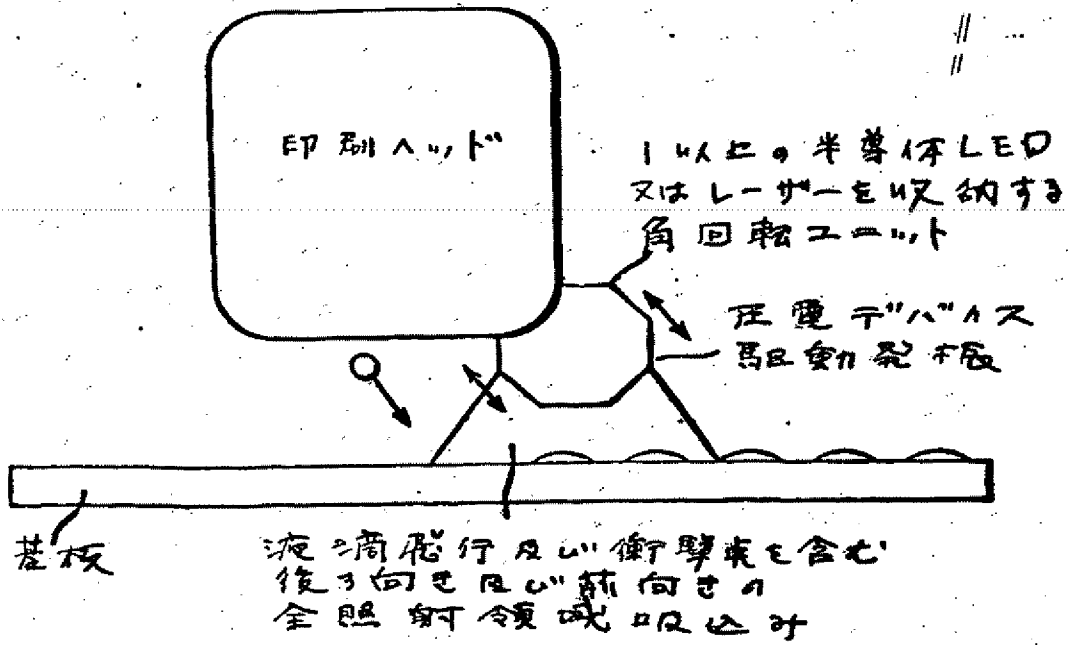 印刷ヘッド
1以上の半導体LED
又はレーザーを収納する
角回転ユニット
圧電デバイス
駆動発振
基板
液滴飛行及び衝撃束を含む
後ろ向き及び前向きの
全照射領域吸込み